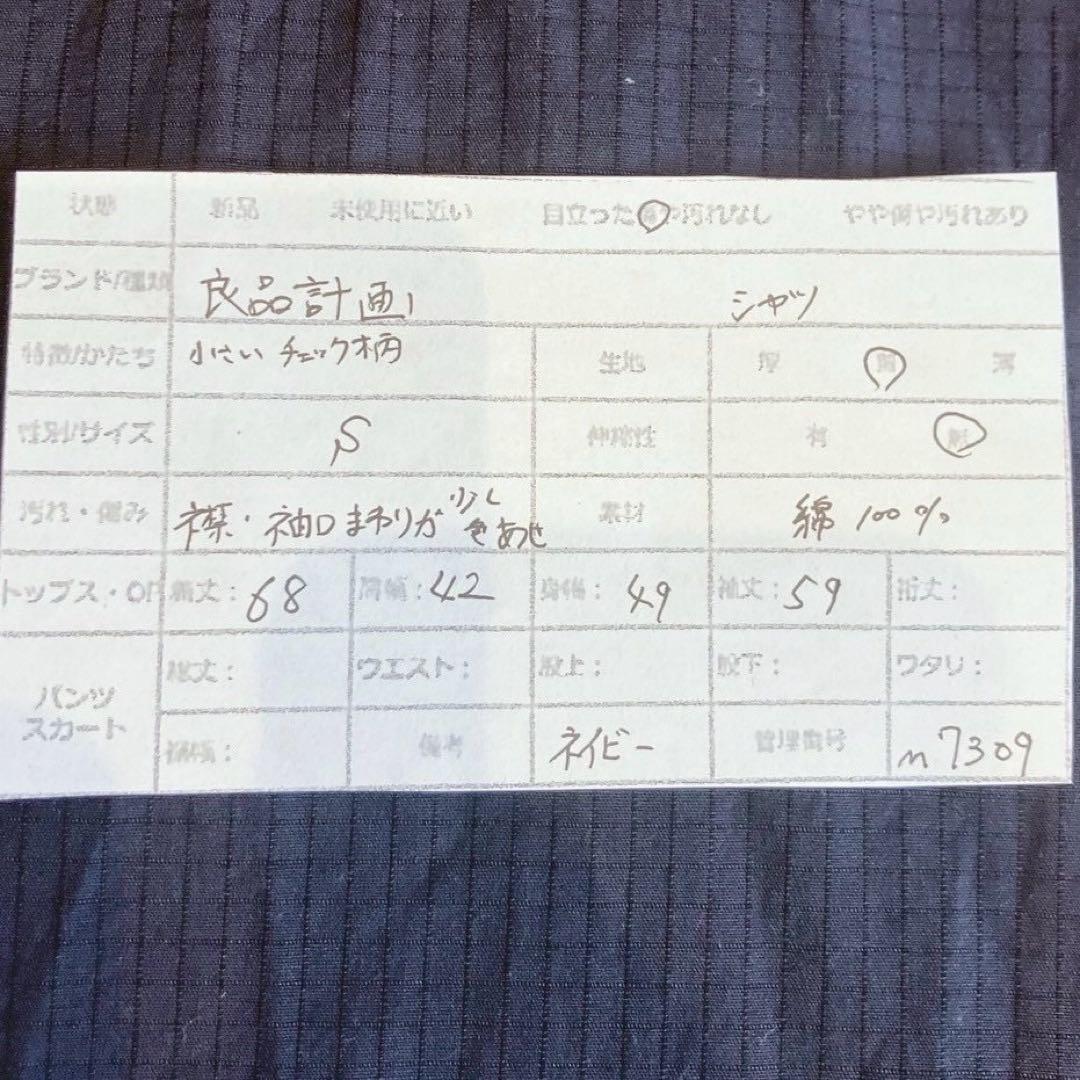 状態 新品 未使用に近い 目立った傷や汚れなし やや傷や汚れあり
ブランド/種類 良品計画 シャツ
特徴/かたち 小さい チェック柄 生地 厚 普 薄
性別/サイズ S 伸縮性 有 無
汚れ・傷み 襟・袖口まわりが少し色あせ 素材 綿 100%
トップス・OP 着丈: 68 肩幅: 42 身幅: 49 袖丈: 59 裄丈:
パンツ スカート 総丈: ウエスト: 股上: 股下: ワタリ:
裾幅: 備考 ネイビー 管理番号 m7309